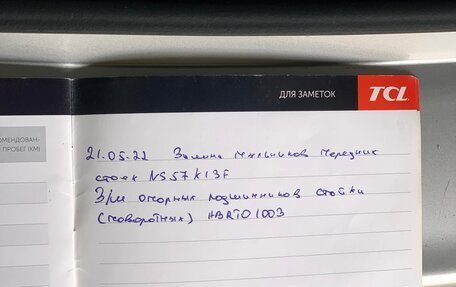 ОМЕНДОВАН-
ПРОБЕГ (КМ)
ДЛЯ ЗАМЕТОК
TCL
21.05.22 Замена пыльников передних
стоек NS57K13F
З/м опорных подшипников стойки
(поворотных) HBRTO1003